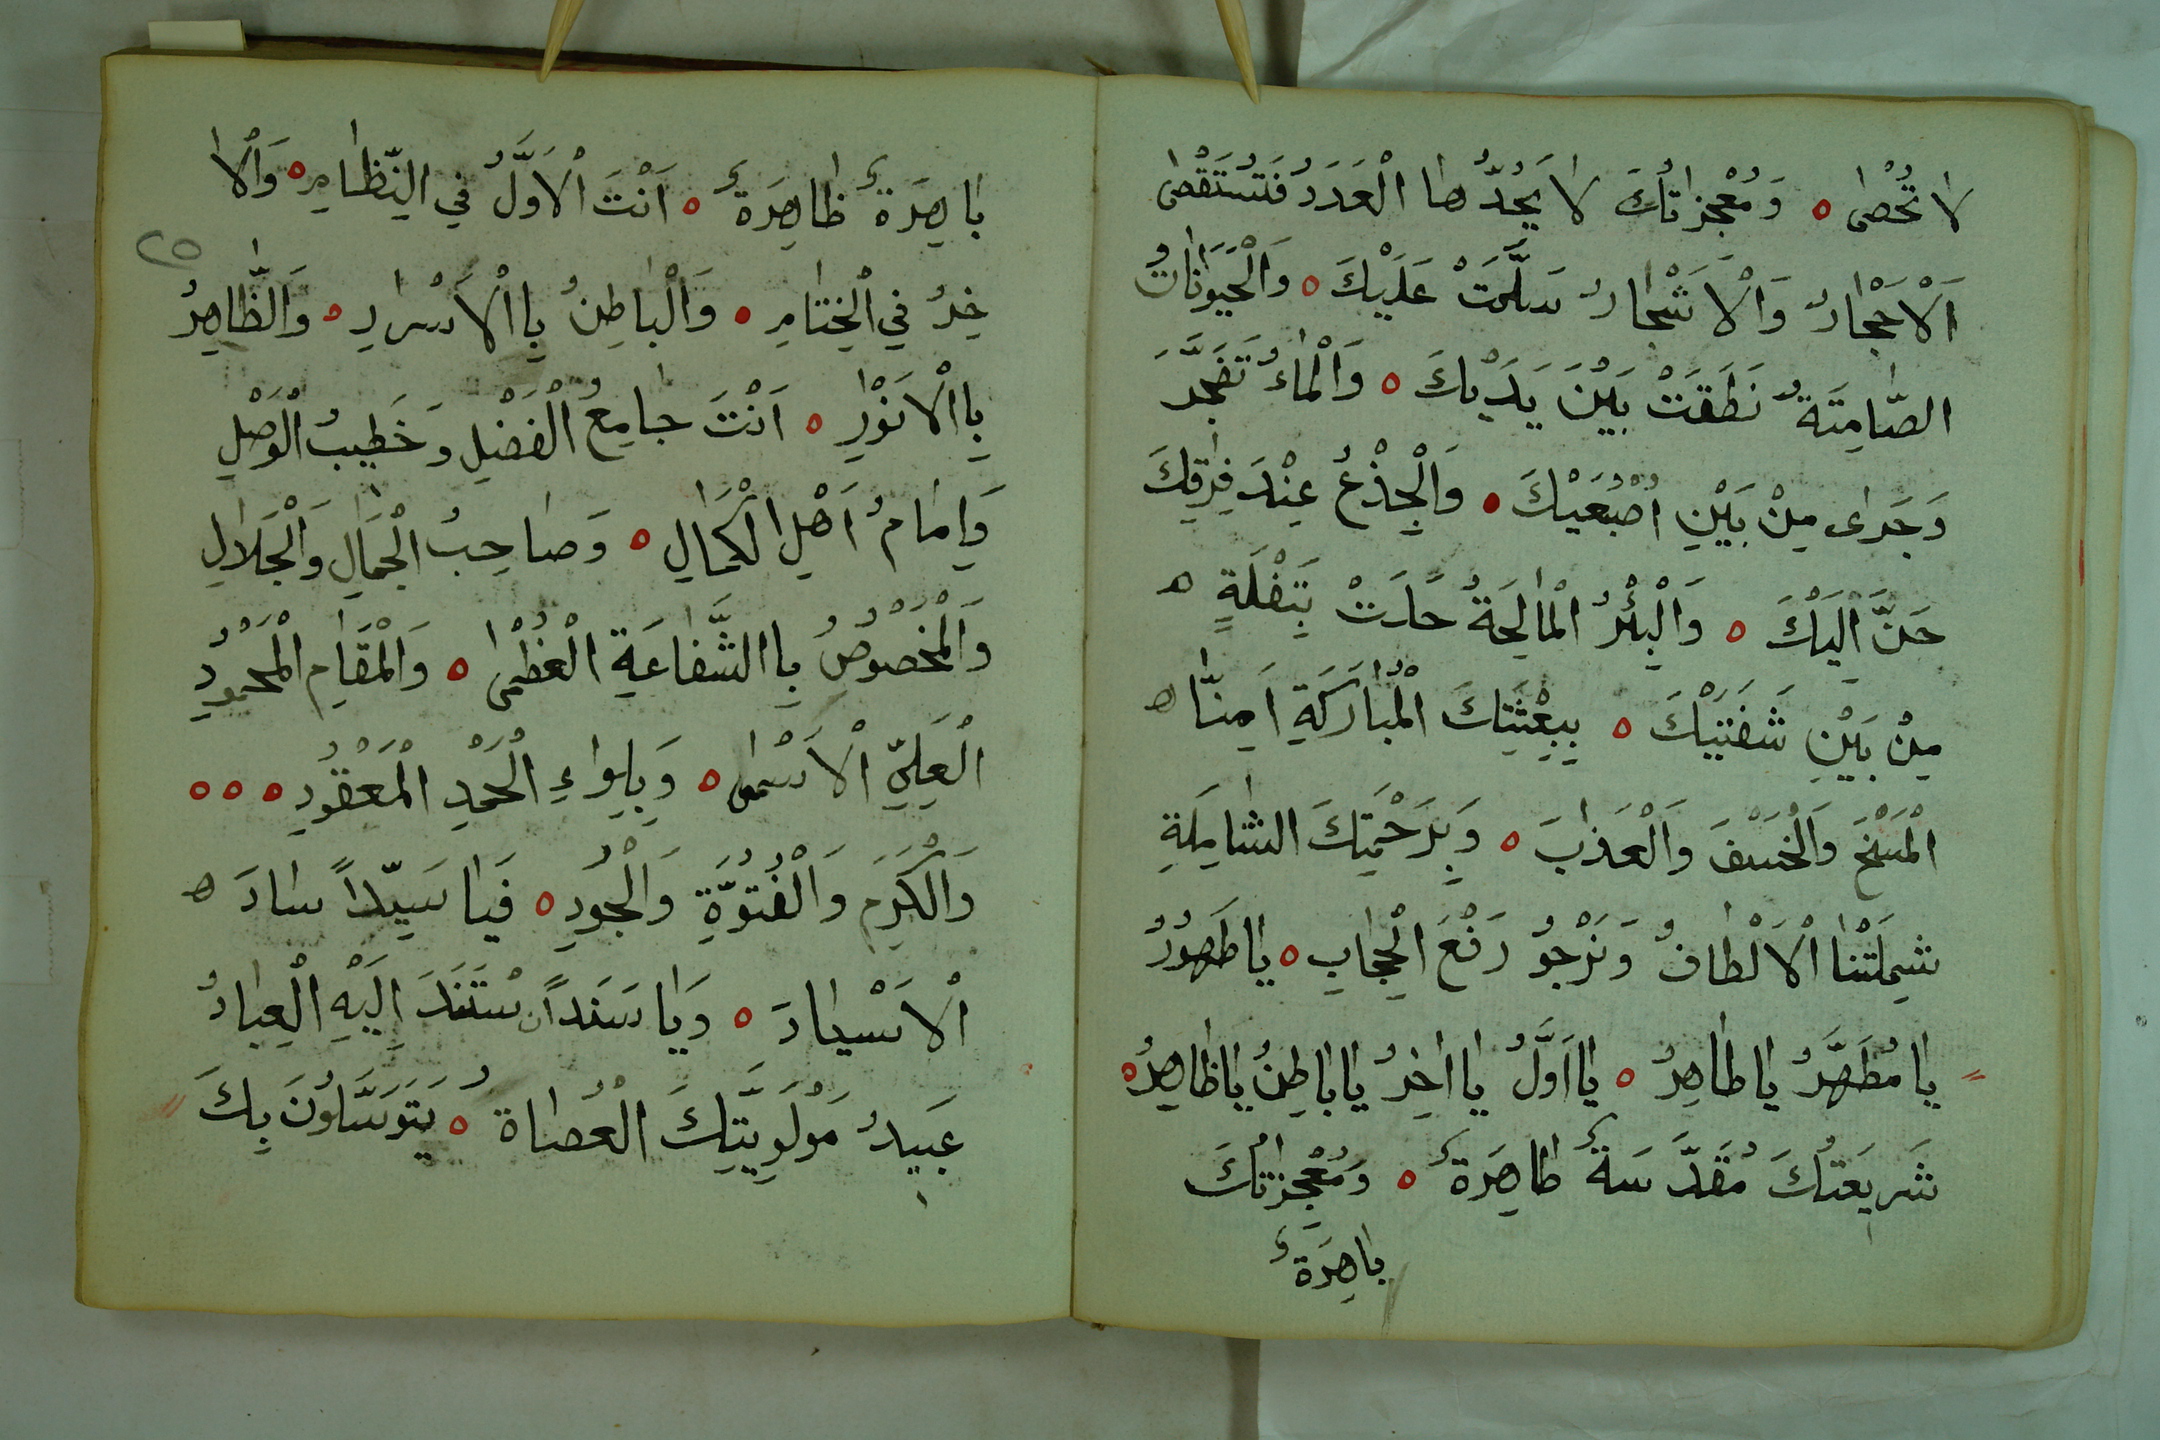 لَا تُحْصٰى ٥ وَمُعْجِزَاتُكَ لَا يَحُدُّهَا الْعَدَدُ فَتُسْتَقْصٰى
اَلْاَحْجَارُ وَالْاَشْجَارُ سَلَّمَتْ عَلَيْكَ ٥ وَالْحَيَوَانَاتُ
الصَّامِتَةُ نَطَقَتْ بَيْنَ يَدَيْكَ ٥ وَالْمَاءُ تَفَجَّرَ
وَجَرٰى مِنْ بَيْنِ اُصْبُعَيْكَ ٥ وَالْجِذْعُ عِنْدَ فِرَاقِكَ
حَنَّ اِلَيْكَ ٥ وَالْبِئْرُ الْمَالِحَةُ حَلَتْ بِتَفْلَةٍ ه
مِنْ بَيْنِ شَفَتَيْكَ ٥ بِبِعْثَتِكَ الْمُبَارَكَةِ اَمِنَّا ه
الْمَسْخَ وَالْخَسْفَ وَالْعَذَابَ ٥ وَبِرَحْمَتِكَ الشَّامِلَةِ
شَمِلَتْنَا الْاَلْطَافُ وَنَرْجُو رَفْعَ الْحِجَابِ ٥ يَا طَهُورُ
يَا مُطَهَّرُ يَا طَاهِرُ ٥ يَا اَوَّلُ يَا اٰخِرُ يَا بَاطِنُ يَا ظَاهِرُ ٥
شَرِيعَتُكَ مُقَدَّسَةٌ طَاهِرَةٌ ٥ وَمُعْجِزَاتُكَ
بَاهِرَةٌ
بَاهِرَةٌ ظَاهِرَةٌ ٥ اَنْتَ الْاَوَّلُ فِي النِّظَامِ ٥ وَالْاٰ
٢٥
خِرُ فِي الْخِتَامِ ٥ وَالْبَاطِنُ بِاالْاَسْرَارِ ٥ وَالظَّاهِرُ
بِاالْاَنْوَارِ ٥ اَنْتَ جَامِعُ الْفَضْلِ وَخَطِيبُ الْوَصْلِ
وَاِمَامُ اَهْلِ الْكَمَالِ ٥ وَصَاحِبُ الْجَمَالِ وَالْجَلَالِ
وَالْمَخْصُوصُ بِاالشَّفَاعَةِ الْعُظْمٰى ٥ وَالْمَقَامِ الْمَحْمُودِ
الْعَلِيِّ الْاَسْمٰى ٥ وَبِلِوَاءِ الْحَمْدِ الْمَعْقُودِ ٥ ٥ ٥
وَالْكَرَمِ وَالْفُتُوَّةِ وَالْجُودِ ٥ فَيَا سَيِّدًا سَادَ ه
الْاَسْيَادَ ٥ وَيَا سَنَدًا اسْتَنَدَ اِلَيْهِ الْعِبَادُ
عَبِيدُ مَوْلَوِيَّتِكَ الْعُصَاةُ ٥ يَتَوَسَّلُونَ بِكَ